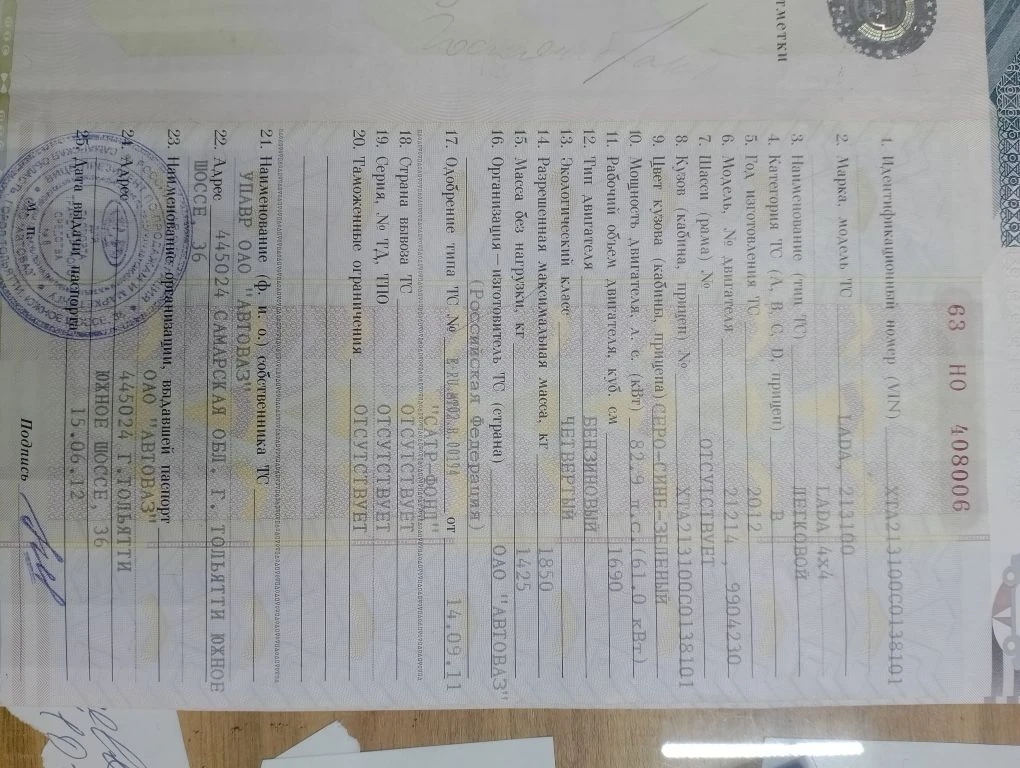 отметки
63 НО 408006
1. Идентификационный номер (VIN) XTA213100C0138101
2. Марка, модель ТС LADA, 213100
LADA 4x4
3. Наименование (тип ТС) ЛЕГКОВОЙ
4. Категория ТС (А, В, С, D, прицеп) B
5. Год изготовления ТС 2012
6. Модель, № двигателя 21214, 9904230
7. Шасси (рама) № ОТСУТСТВУЕТ
8. Кузов (кабина, прицеп) № XTA213100C0138101
9. Цвет кузова (кабины, прицепа) СЕРО-СИНЕ-ЗЕЛЕНЫЙ
10. Мощность двигателя, л. с. (кВт) 82.9 л.с.(61.0 кВт)
11. Рабочий объем двигателя, куб. см 1690
12. Тип двигателя БЕНЗИНОВЫЙ
13. Экологический класс ЧЕТВЕРТЫЙ
14. Разрешенная максимальная масса, кг 1850
15. Масса без нагрузки, кг 1425
16. Организация – изготовитель ТС (страна) ОАО "АВТОВАЗ"
(Российская Федерация)
17. Одобрение типа ТС № от 14.09.11
"САТР-ФОНД"
18. Страна вывоза ТС ОТСУТСТВУЕТ
19. Серия, № ТД, ТПО ОТСУТСТВУЕТ
20. Таможенные ограничения ОТСУТСТВУЕТ
21. Наименование (ф. и. о.) собственника ТС
УПАВР ОАО "АВТОВАЗ"
22. Адрес 445024 САМАРСКАЯ ОБЛ. Г. ТОЛЬЯТТИ ЮЖНОЕ
ШОССЕ 36
23. Наименование организации, выдавшей паспорт
ОАО "АВТОВАЗ"
24. Адрес 445024 Г.ТОЛЬЯТТИ
ЮЖНОЕ ШОССЕ, 36
25. Дата выдачи паспорта 15.06.12
М. П.
Подпись